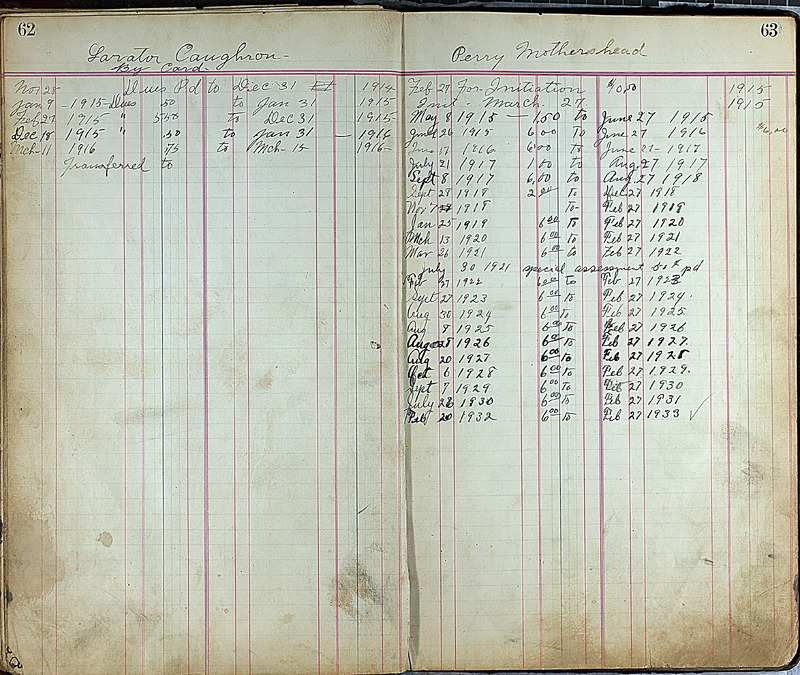 62
Larator Caughron
By Card
Nov 28 Dues Pd to Dec 31 1914
Jan 9 - 1915 - Dues .50 to Jan 31 1915
Feb 27 1915 " 5 50 to Dec 31 1915
Dec 18 1915 " .50 to Jan 31 - 1916
Mch - 11 1916 .75 to Mch - 15 1916
Transferred to
63
Perry Mothershead
Feb 27 For Initiation 1915
Init - March 27 1915
May 8 1915 - 1.50 to June 27 1915
26 1915 6 00 To June 27 1916 $6.00
17 1916 6 00 to June 27 - 1917
July 21 1917 1.00 to Aug 27 1917
Sept 8 1917 6.00 to Aug 27 1918
Sept 27 1918 2 00 To Dec 27 1918
Nov 1918 To - Feb 27 1919
Jan 25 1919 6 00 To Feb 27 1920
Mch 13 1920 6 00 To Feb 27 1921
Mar 26 1921 6 00 to Feb 27 1922
July 30 1921 special assessment 50 pd
Feb 27 1922 6 00 to Feb 27 1923
Sept 27 1923 6 00 To Feb 27 1924
Aug 30 1924 6 00 To Feb 27 1925
Aug 8 1925 6 00 To Feb 27 1926
Aug 28 1926 6 00 To Feb 27 1927
Aug 20 1927 6 00 To Feb 27 1928
Oct 6 1928 6 00 To Feb 27 1929
Sept 7 1929 6 00 To Feb 27 1930
July 26 1930 6 00 To Feb 27 1931
Feb 20 1932 6 00 To Feb 27 1933 ✓